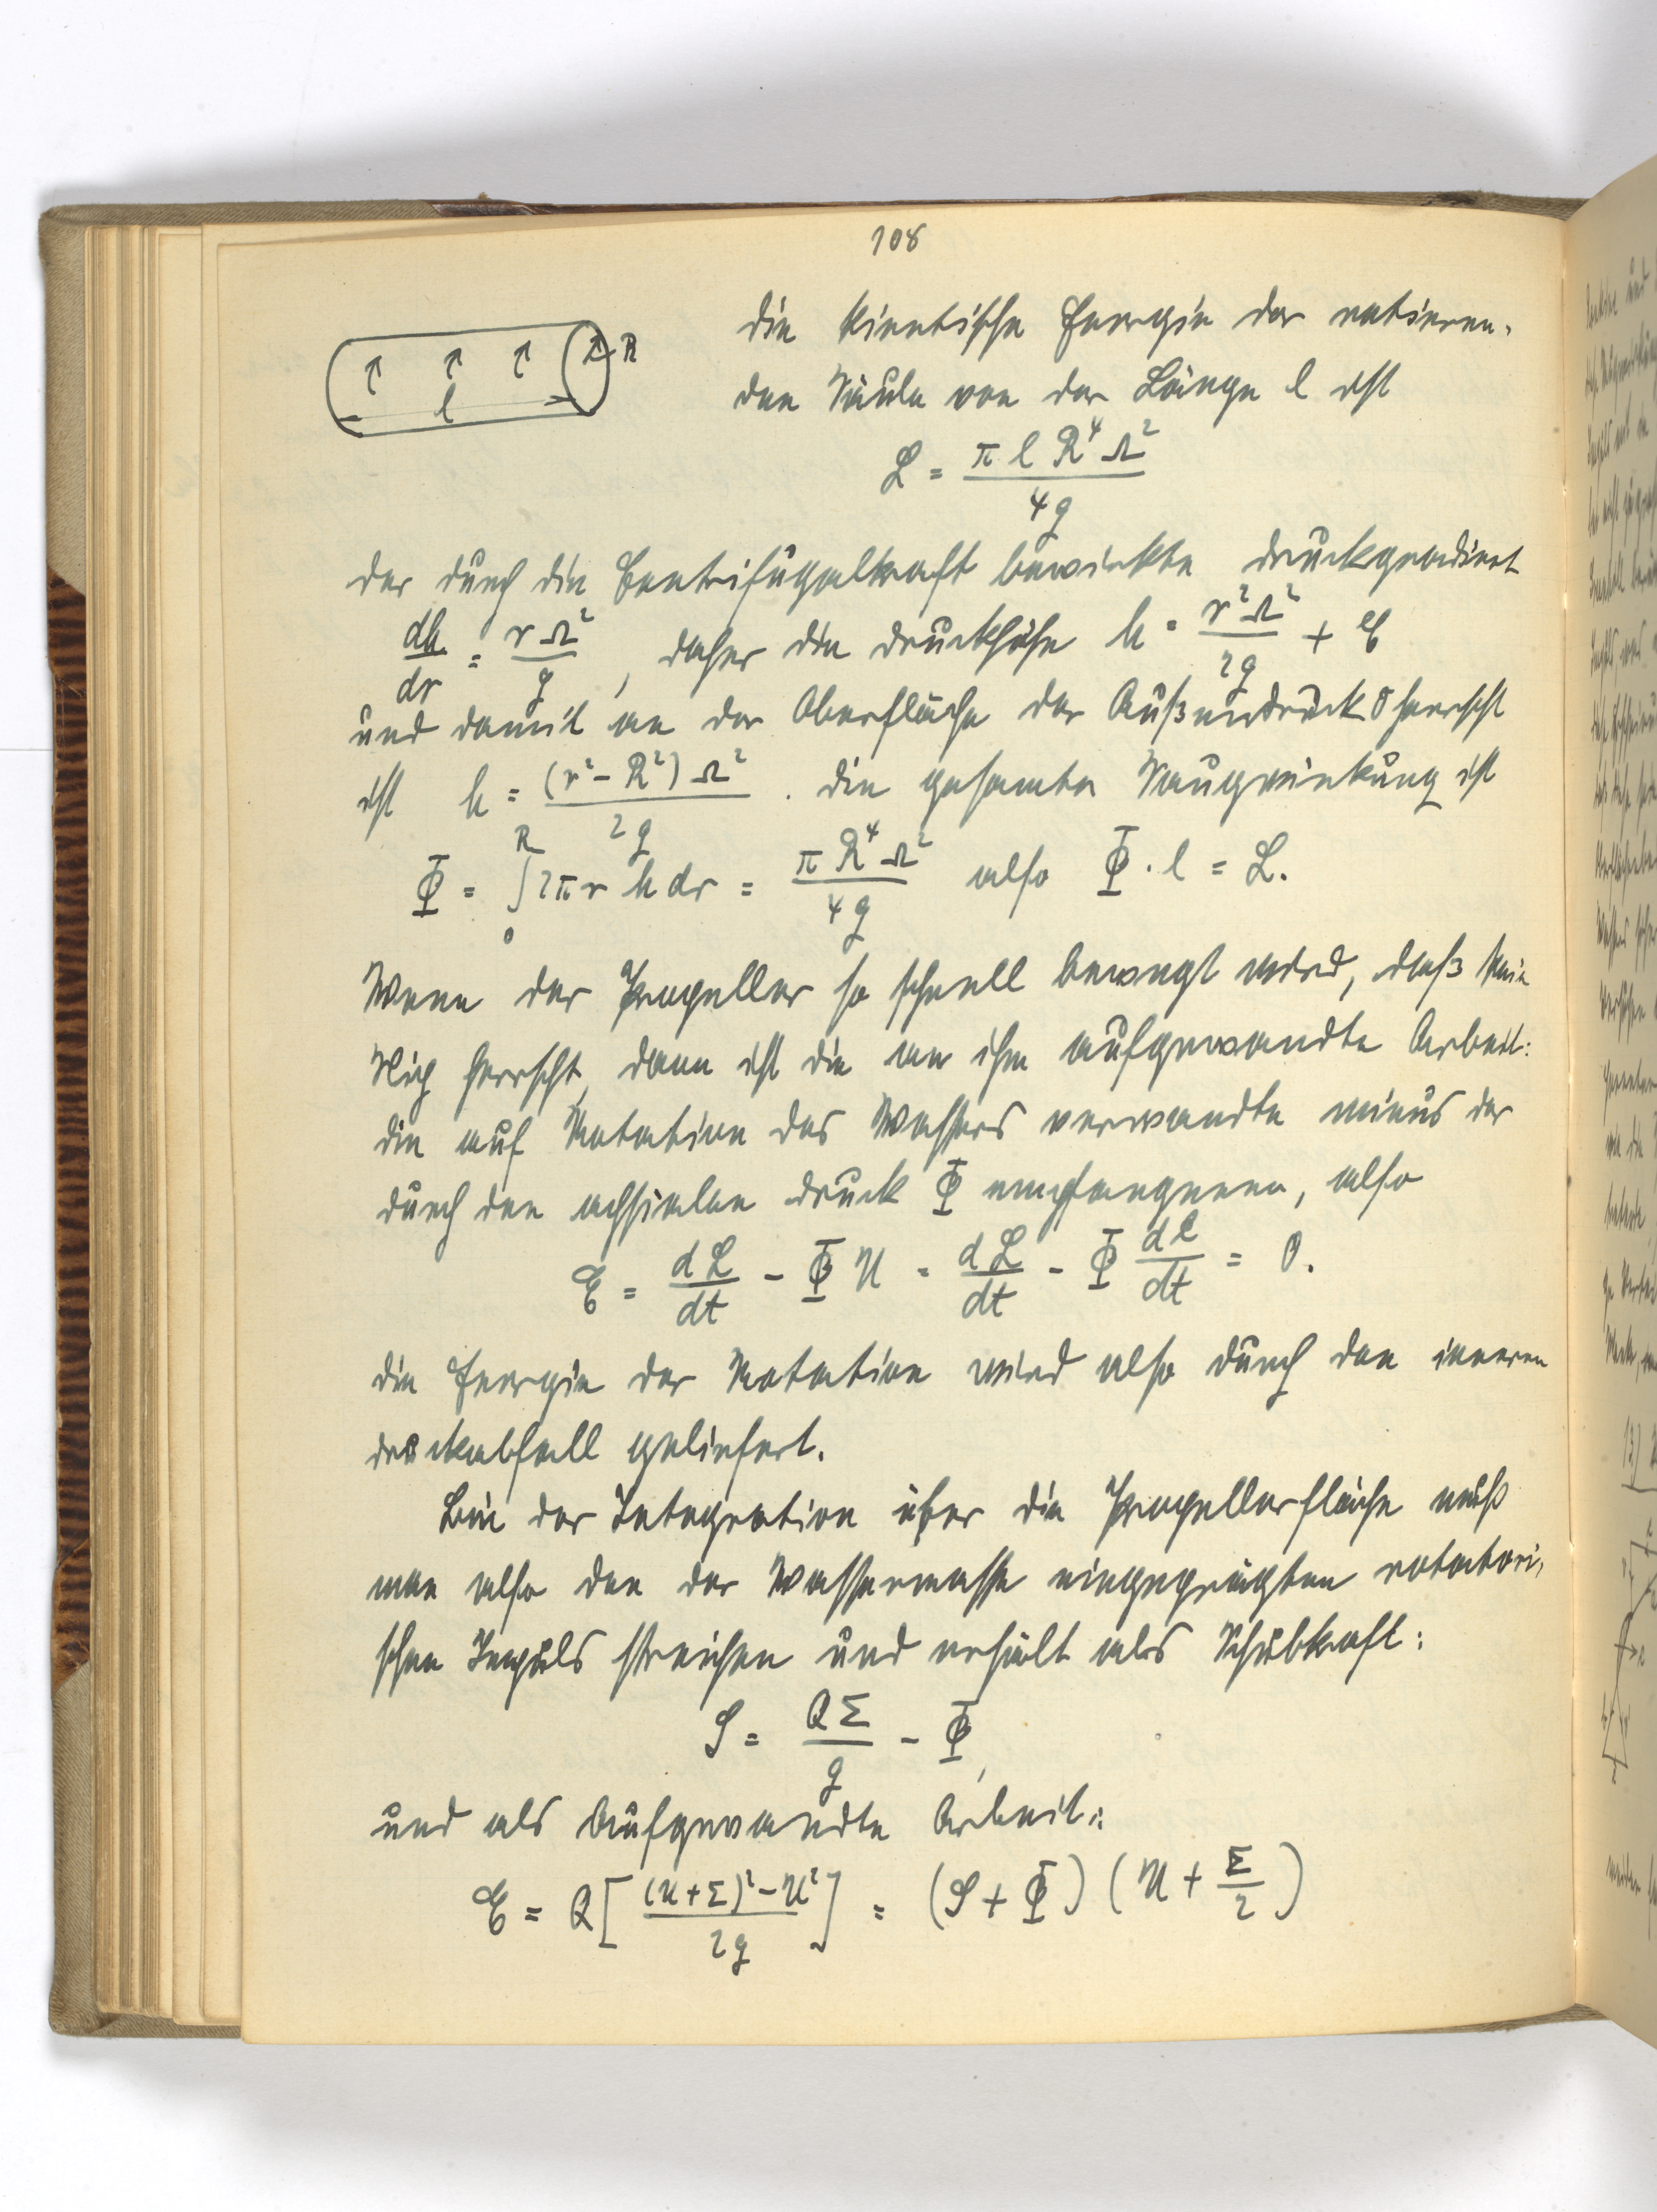 108
die kinetische Energie der rotieren-
den Säule von der Länge l ist
L = π l R⁴ Ω² / 4g
R
l
der durch die Centrifugalkraft bewirkte Druckgradient
dh/dr = r Ω² / g , daher die Druckhöhe h = r² Ω² / 2g + C
und damit an der Oberfläche der Außendruck 0 herrscht
ist h = (r² - R²) Ω² / 2g . die gesamte Saugwirkung ist
Φ = ∫₀ᴿ 2π r h dr = π R⁴ Ω² / 4g also Φ · l = L.
Wenn der Propeller so schnell bewegt wird, daß kein
Slip herrscht, dann ist die an ihm aufgewandte Arbeit:
die auf Rotation des Wassers verwandte minus der
durch den achsialen Druck Φ empfangenen, also
E = dL/dt - Φ U = dL/dt - Φ dl/dt = 0.
die Energie der Rotation wird also durch den inneren
Druckabfall geliefert.
Bei der Integration über die Propellerfläche muß
man also den der Wassermasse eingeprägten rotatori-
schen Impuls streichen und erhält als Schubkraft:
S = QΣ / g - Φ,
und als Aufgewandte Arbeit:
E = Q [ ((U + Σ)² - U²) / 2g ] = (S + Φ) (U + Σ/2)